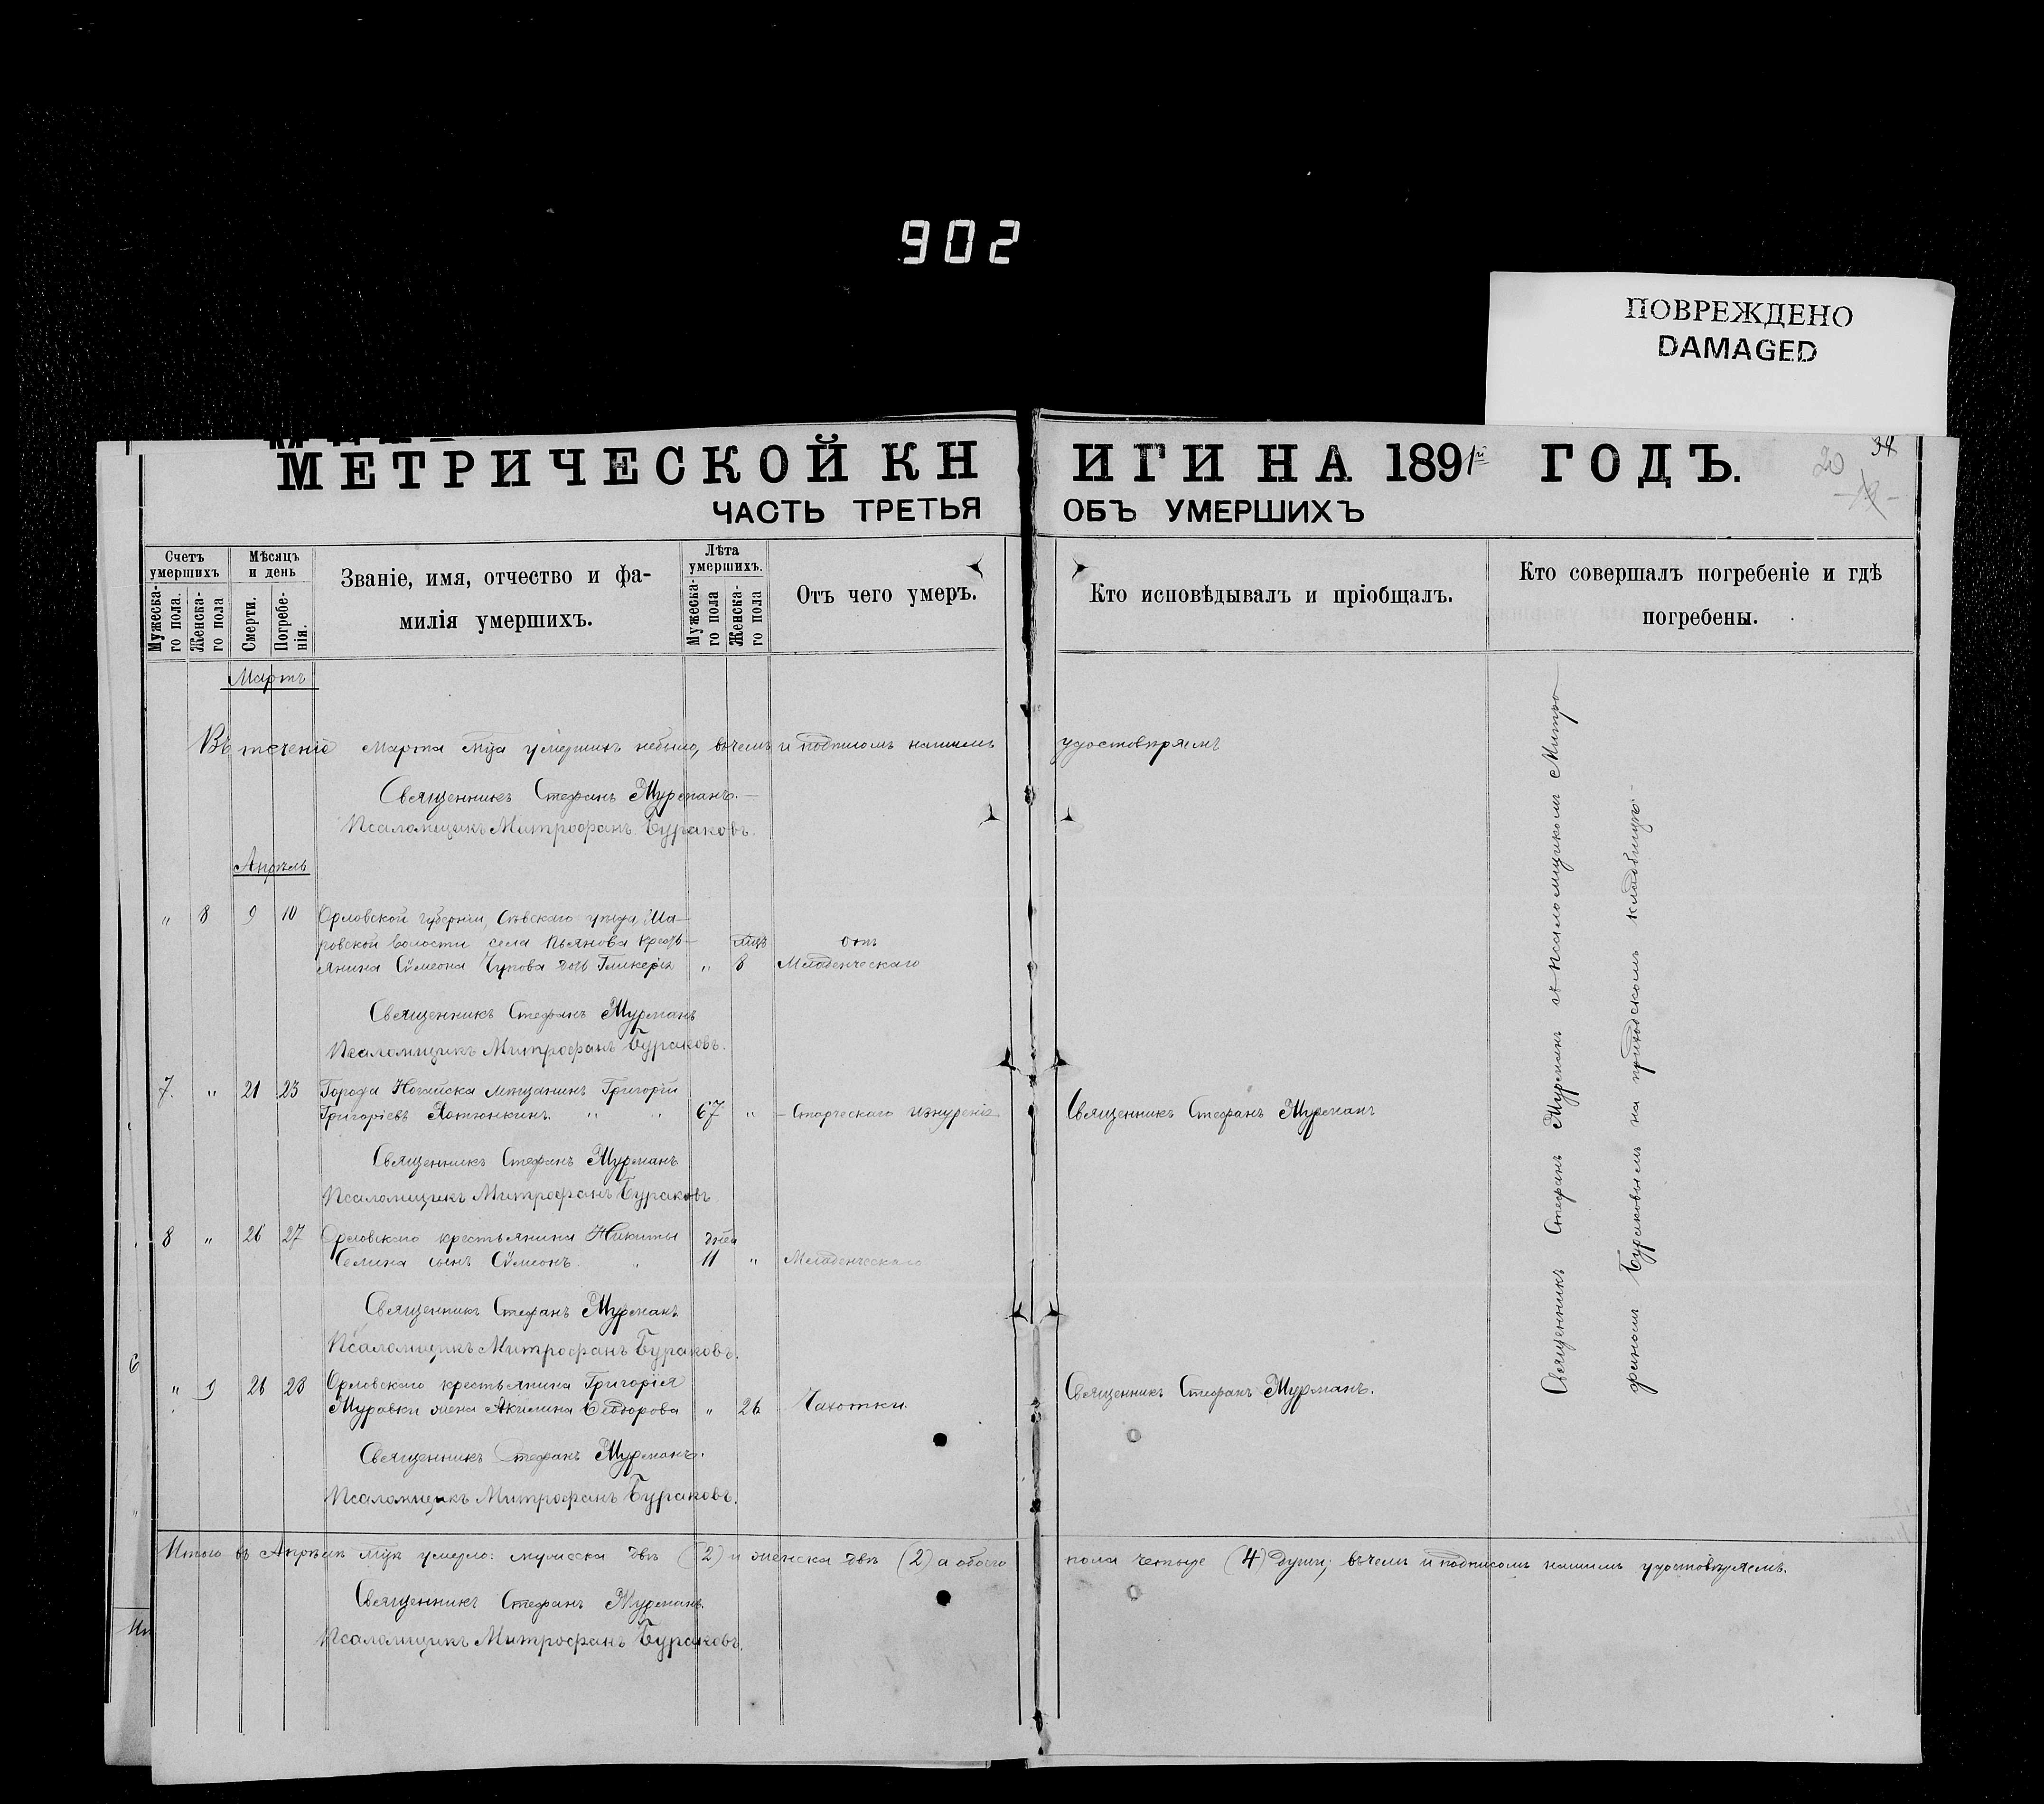 902
ПОВРЕЖДЕНО
DAMAGED
МЕТРИЧЕСКОЙ КНИГИ НА 1891й ГОДЪ.
34
20
ЧАСТЬ ТРЕТЬЯ ОБЪ УМЕРШИХЪ
Счетъ умершихъ
Мужеска-го пола.
Женска-го пола
Мѣсяцъ и день
Смерти.
Погребе-нія.
Званіе, имя, отчество и фа-
милія умершихъ.
Лѣта умершихъ.
Мужеска-го пола
Женска-го пола
Отъ чего умеръ.
Кто исповѣдывалъ и пріобщалъ.
Кто совершалъ погребеніе и гдѣ
погребены.
Мартъ
Въ теченіе марта мца умершихъ небыло, вчемъ и подписомъ нашимъ удостовѣряемъ
Священникъ Стефанъ Мурманъ.
Псаломщикъ Митрофанъ Бураковъ.
Апрѣль
„ 8 9 10 Орловской губерніи, Сѣвскаго уѣзда,
ровской волости села Пьянова кресть- отъ
янина Сѵмеона дочь Гликерія „ 8 Младенческаго
Священникъ Стефанъ Мурманъ
Псаломщикъ Митрофанъ Бураковъ.
7. „ 21 23 Города Ногайска мѣщанинъ Григорій
Григоріевъ „ „ 67 „ Старческаго изнуренія Священникъ Стефанъ Мурманъ
Священникъ Стефанъ Мурманъ
Псаломщикъ Митрофанъ Бураковъ
8 „ 26 27 Орловскаго крестьянина Никиты дней
сынъ Сѵмеонъ. „ 11 „ Младенческаго
Священникъ Стефанъ Мурманъ.
Псаломщикъ Митрофанъ Бураковъ.
„ 9 26 28 Орловскаго крестьянина Григорія
Муравки жена Акилина Ѳеодорова „ 26 Чахотки. Священникъ Стефанъ Мурманъ.
Священникъ Стефанъ Мурманъ.
Псаломщикъ Митрофанъ Бураковъ.
Священникъ Стефанъ Мурманъ съ псаломщикомъ Митро-
фаномъ Бураковымъ на приходскомъ кладбищѣ.
Итого въ Апрѣлѣ мцѣ умерло: мужеска двѣ (2) и женска двѣ (2) а обоего пола четыре (4) души, вчемъ и подписомъ нашимъ удостовѣряемъ.
Священникъ Стефанъ Мурманъ.
Псаломщикъ Митрофанъ Бураковъ.